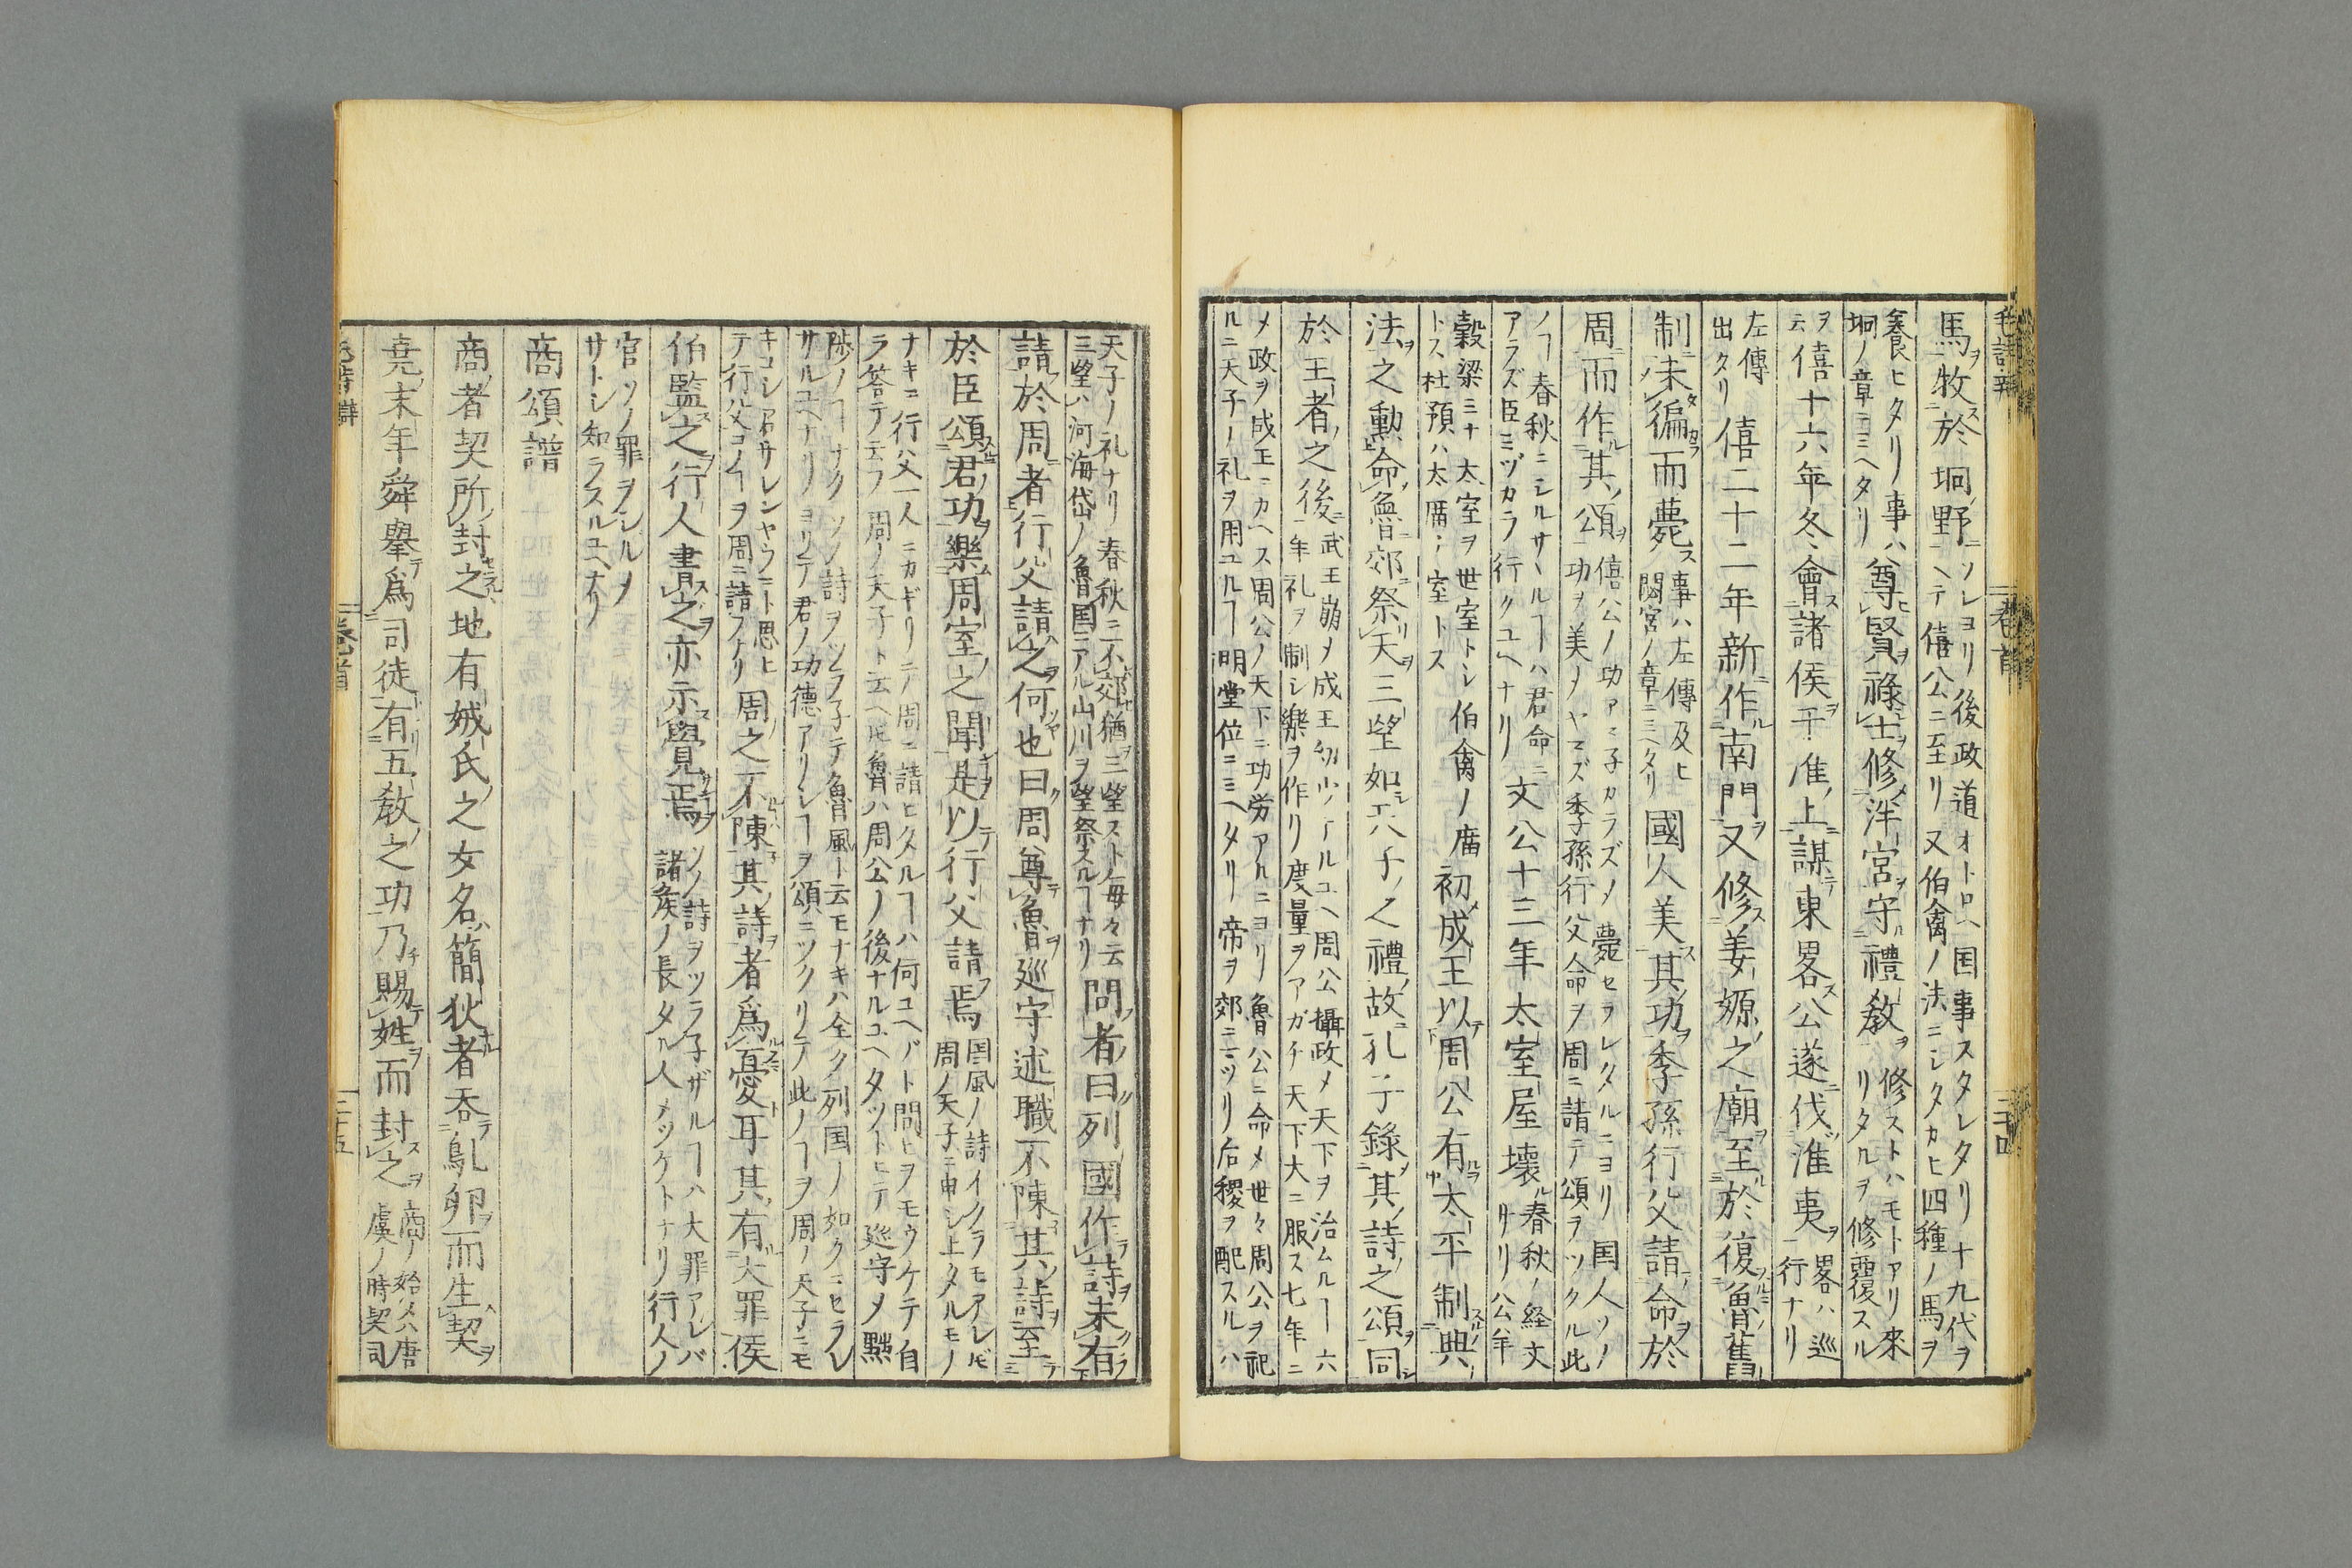 毛詩辨 卷首 三十四
馬ヲ牧ス於坰野ニ ソレヨリ後政道オトロヘ国事スタレタリ十九代ヲ
ヘテ僖公ニ至リ又伯禽ノ法ニシタカヒ四種ノ馬ヲ
養ヒタリ事ハ
坰ノ章ニミヘタリ 尊ヒ賢ヲ祿シ士ヲ修メ泮宮ヲ守ル禮敎ヲ 修ストハモトアリ來
リタルヲ修覆スル
ヲ
云 僖十六年冬會ス諸侯ヲ于淮ノ上ニ謀テ東畧ス公遂ニ伐ツ淮夷ヲ 畧ハ巡
行ナリ
左傳
出タリ 僖二十二年新ニ作ル南門ヲ又修ス姜嫄ノ之廟ヲ至ル於復スルニ魯ノ舊
制ニ未タ徧カラ而薨ス 事ハ左傳及ヒ
閟宮ノ章ニミヘタリ 國人美ス其功ヲ季孫行父請ノ命ヲ於
周ニ而作ル其頌ヲ 僖公ノ功アマ子カラズメ薨セラレタルニヨリ国人ソノ
功ヲ美メヤマズ季孫行父命ヲ周ニ請テ頌ヲツクル此
ノヿ春秋ニシルサヽルヿハ君命ニ
アラズ臣ミヅカラ行クユヘナリ 文公十三年太室屋壞ル 春秋ノ経文
ナリ公羊
穀梁ミナ太室ヲ世室トシ伯禽ノ廟
トス杜預ハ太廟ノ室トス 初メ成王以テ周公有ルヲ太平制スル典
法ヲ之勳命ノ魯ニ郊祭リ天ヲ三望如シ天子ノ之禮故ニ孔子錄ノ其ノ詩ノ之頌ヲ同シ
於王者ノ之後ニ 武王崩メ成王幼少ナルユヘ周公攝政メ天下ヲ治ムルヿ六
年礼ヲ制シ樂ヲ作リ度量ヲアガチ天下大ニ服ス七年ニ
メ政ヲ成王ニカヘス周公ノ天下ニ功労アルニヨリ魯公ニ命メ世々周公ヲ祀
ルニ天子ノ礼ヲ用ユルヿ明堂位ニミヘタリ帝ヲ郊ニマツリ后稷ヲ配スルハ
天子ノ礼ナリ春秋ニ不郊セ猶ヲ三望スト毎々云
三望ハ河海岱ノ魯国ニアル山川ヲ望祭スルヿナリ 問者ノ曰ク列國作ラ詩ヲ未有
請フ於周ニ者行父請之ヲ何ソヤ也曰ク周尊テ魯ヲ巡守述職不陳其ノ詩ヲ至テ
於臣頌スルニ君ノ功ヲ樂周室ノ之聞キヲ是以テ行父請フ焉 国風ノ詩イクラモアレ𪜈
周ノ天子ニ申シ上タルモノ
ナキニ行父一人ニカギリテ周ニ請ヒタルヿハ何ユヘゾト問ヒヲモウケテ自
ラ答テ云フ周ノ天子ト云ヘ𪜈魯ハ周公ノ後ナルユヘタツトヒテ巡守メ黜
陟ノヿナクソノ詩ヲツラ子テ魯風ト云モナキハ全ク列国ノ如クニセラレ
サルユヘナリヨリテ君ノ功德アリシヿヲ頌ニツクリテ此ノヿヲ周ノ天子ニモ
キコシメサレンヤウニト思ヒ
テ行父コノヿヲ周ニ請フナリ 周ノ之不ルハ陳其ノ詩ヲ者爲ルノミ憂ト耳其ノ有ル大罪侯
伯監ス之ヲ行人書ス之ヲ亦示ス覺焉 ソノ詩ヲツラ子ザルヿハ大罪アレバ
諸侯ノ長タル人メツケトナリ行人ノ
官ソノ罪ヲシルメ
サトシ知ラスルユヘナリ
商頌譜
商ハ者契所ノ封セラルヽ之地有娀氏ノ之女名ハ簡狄者呑テ鳦卵ヲ而生契ヲ
堯ノ末年舜舉テ爲司徒ト有リ五敎ノ之功乃チ賜テ姓ヲ而封ス之ヲ 商ノ始メハ唐
虞ノ時契司
毛詩辨 卷首 三十五